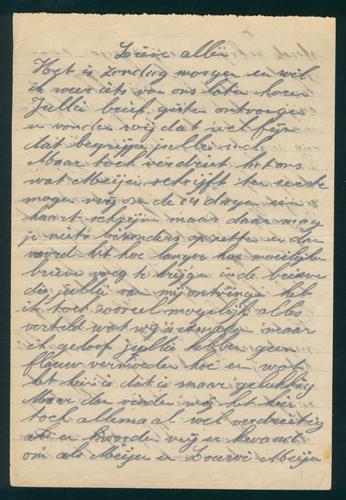 Lieve allen
Hyt is zondag morgen en wil
ik weer iets van ons laten hooren
Jullie brief gisten ontvangen
en vonden wij dat wel fijn
dat begrijpe jullie ook
Maar toch verdriet het ons
wat Meijer schrijft ten eerste
mogen wij om de 14 dagen een
kaart schrijven maar daar mag
je niets bizonders op zetten en dan
word tit hoe langer hoe moeilijker
brieve weg te krijgen in de brieve
die jullie van mij ontvingen heb
ik toch zooveel mogelijk alles
verteld wat wij maar
ik geloof jullie hebben geen
flauw vermoeden hoe en wat
het hier is dat is maar gelukkig
Maar dan vinden wij het hier
toch allemaal wel verdrietig
als en worden wij er kwaad
om als Meijer en Meijer